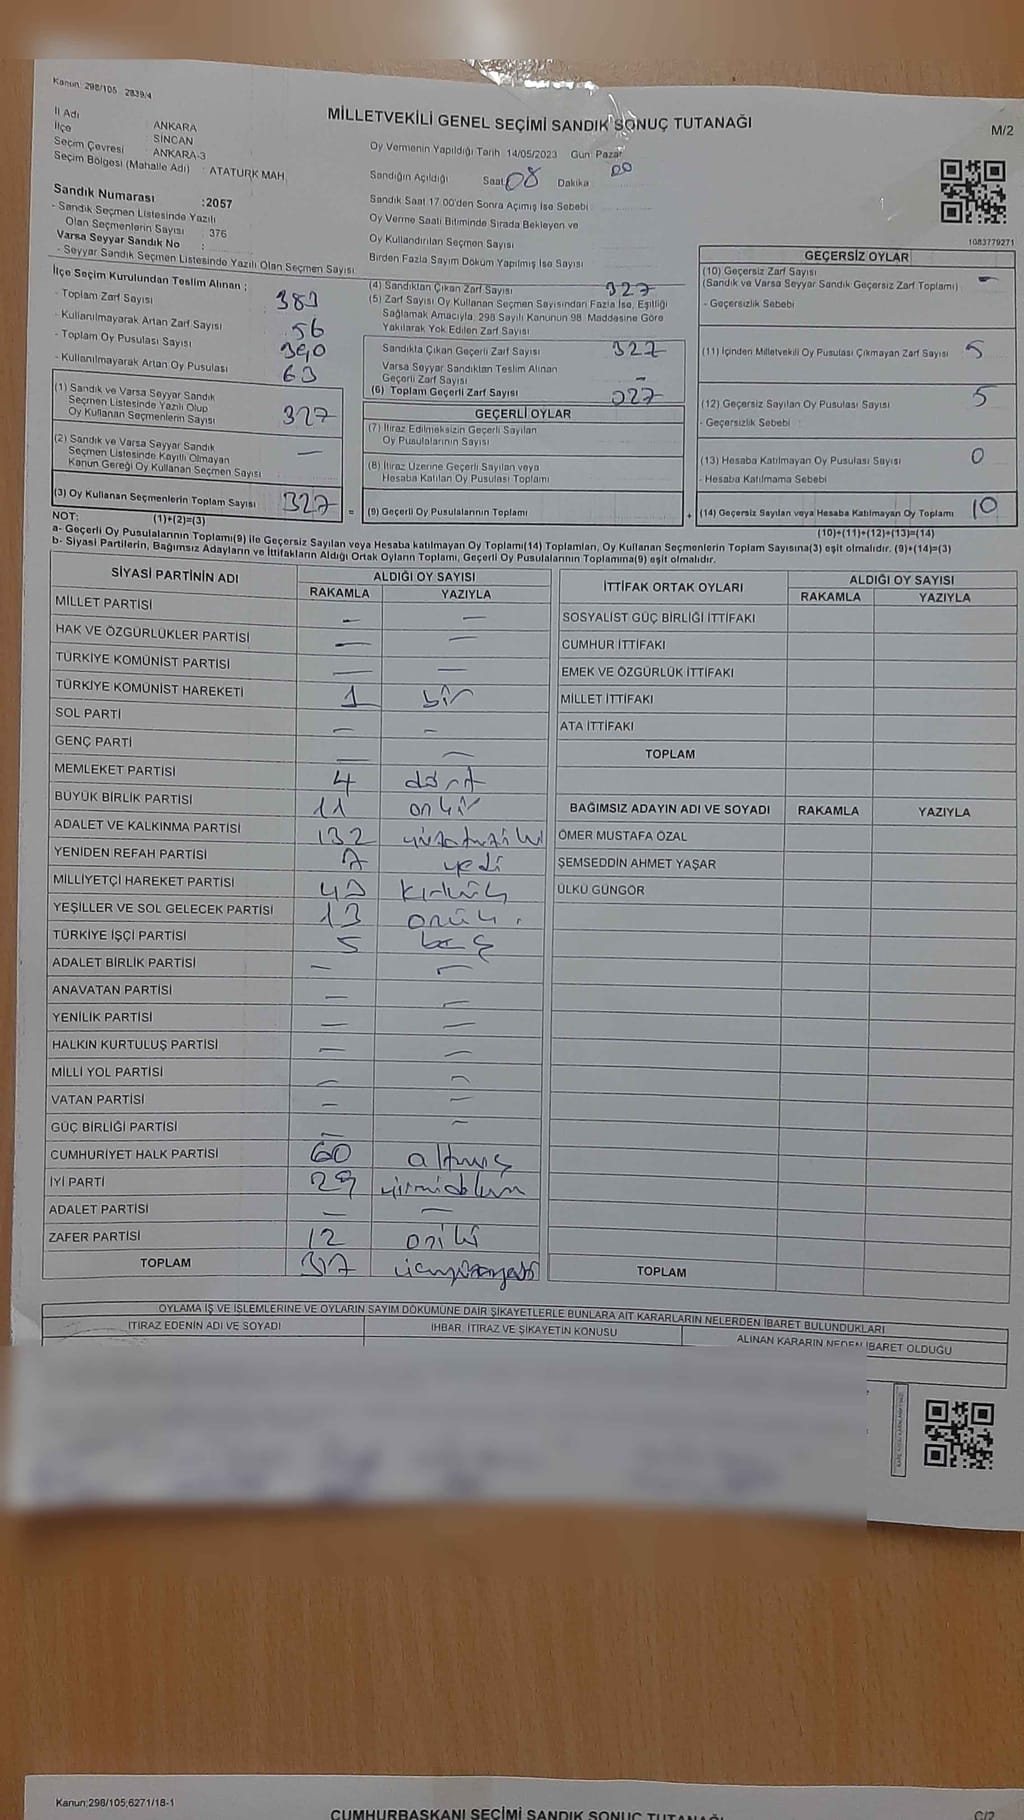 Kanun: 298/105 2839/4
MİLLETVEKİLİ GENEL SEÇİMİ SANDIK SONUÇ TUTANAĞI
M/2
İl Adı ANKARA
İlçe SİNCAN
Seçim Çevresi ANKARA-3
Seçim Bölgesi (Mahalle Adı) : ATATÜRK MAH
Sandık Numarası :2057
- Sandık Seçmen Listesinde Yazılı
Olan Seçmenlerin Sayısı : 376
Varsa Seyyar Sandık No :
- Seyyar Sandık Seçmen Listesinde Yazılı Olan Seçmen Sayısı
Oy Vermenin Yapıldığı Tarih 14/05/2023 Gün: Pazar
Sandığın Açıldığı Saat 08 Dakika 00
Sandık Saat 17:00'den Sonra Açımış İse Sebebi
Oy Verme Saati Bitiminde Sırada Bekleyen ve
Oy Kullandırılan Seçmen Sayısı
Birden Fazla Sayım Döküm Yapılmış İse Sayısı
1083779271
İlçe Seçim Kurulundan Teslim Alınan ;
- Toplam Zarf Sayısı 383
- Kullanılmayarak Artan Zarf Sayısı 56
- Toplam Oy Pusulası Sayısı 390
- Kullanılmayarak Artan Oy Pusulası 63
(1) Sandık ve Varsa Seyyar Sandık
Seçmen Listesinde Yazılı Olup
Oy Kullanan Seçmenlerin Sayısı 327
(2) Sandık ve Varsa Seyyar Sandık
Seçmen Listesinde Kayıtlı Olmayan
Kanun Gereği Oy Kullanan Seçmen Sayısı —
(3) Oy Kullanan Seçmenlerin Toplam Sayısı 327 =
(4) Sandıktan Çıkan Zarf Sayısı 327
(5) Zarf Sayısı Oy Kullanan Seçmen Sayısından Fazla İse, Eşitliği
Sağlamak Amacıyla, 298 Sayılı Kanunun 98. Maddesine Göre
Yakılarak Yok Edilen Zarf Sayısı
Sandıkta Çıkan Geçerli Zarf Sayısı 327
Varsa Seyyar Sandıktan Teslim Alınan
Geçerli Zarf Sayısı -
(6) Toplam Geçerli Zarf Sayısı 327
GEÇERLİ OYLAR
(7) İtiraz Edilmeksizin Geçerli Sayılan
Oy Pusulalarının Sayısı
(8) İtiraz Üzerine Geçerli Sayılan veya
Hesaba Katılan Oy Pusulası Toplamı
(9) Geçerli Oy Pusulalarının Toplamı +
GEÇERSİZ OYLAR
(10) Geçersiz Zarf Sayısı -
(Sandık ve Varsa Seyyar Sandık Geçersiz Zarf Toplamı)
- Geçersizlik Sebebi
(11) İçinden Milletvekili Oy Pusulası Çıkmayan Zarf Sayısı 5
(12) Geçersiz Sayılan Oy Pusulası Sayısı 5
- Geçersizlik Sebebi :
(13) Hesaba Katılmayan Oy Pusulası Sayısı 0
- Hesaba Katılmama Sebebi
(14) Geçersiz Sayılan veya Hesaba Katılmayan Oy Toplamı 10
NOT: (1)+(2)=(3)
(10)+(11)+(12)+(13)=(14)
a- Geçerli Oy Pusulalarının Toplamı(9) ile Geçersiz Sayılan veya Hesaba katılmayan Oy Toplamı(14) Toplamları, Oy Kullanan Seçmenlerin Toplam Sayısına(3) eşit olmalıdır. (9)+(14)=(3)
b- Siyasi Partilerin, Bağımsız Adayların ve İttifakların Aldığı Ortak Oyların Toplamı, Geçerli Oy Pusulalarının Toplamına(9) eşit olmalıdır.
SİYASİ PARTİNİN ADI ALDIĞI OY SAYISI
RAKAMLA YAZIYLA
MİLLET PARTİSİ — —
HAK VE ÖZGÜRLÜKLER PARTİSİ — —
TÜRKİYE KOMÜNİST PARTİSİ — —
TÜRKİYE KOMÜNİST HAREKETİ 1 bir
SOL PARTİ — —
GENÇ PARTİ — —
MEMLEKET PARTİSİ 4 dört
BÜYÜK BİRLİK PARTİSİ 11 onbir
ADALET VE KALKINMA PARTİSİ 132 yüzotuziki
YENİDEN REFAH PARTİSİ 7 yedi
MİLLİYETÇİ HAREKET PARTİSİ 43 kırküç
YEŞİLLER VE SOL GELECEK PARTİSİ 13 onüç
TÜRKİYE İŞÇİ PARTİSİ 5 beş
ADALET BİRLİK PARTİSİ — —
ANAVATAN PARTİSİ — —
YENİLİK PARTİSİ — —
HALKIN KURTULUŞ PARTİSİ — —
MİLLİ YOL PARTİSİ — —
VATAN PARTİSİ — —
GÜÇ BİRLİĞİ PARTİSİ — —
CUMHURİYET HALK PARTİSİ 60 altmış
İYİ PARTİ 29 yirmidokuz
ADALET PARTİSİ — —
ZAFER PARTİSİ 12 oniki
TOPLAM 317 üçyüzonyedi
İTTİFAK ORTAK OYLARI ALDIĞI OY SAYISI
RAKAMLA YAZIYLA
SOSYALİST GÜÇ BİRLİĞİ İTTİFAKI
CUMHUR İTTİFAKI
EMEK VE ÖZGÜRLÜK İTTİFAKI
MİLLET İTTİFAKI
ATA İTTİFAKI
TOPLAM
BAĞIMSIZ ADAYIN ADI VE SOYADI RAKAMLA YAZIYLA
ÖMER MUSTAFA ÖZAL
ŞEMSEDDİN AHMET YAŞAR
ÜLKÜ GÜNGÖR
TOPLAM
OYLAMA İŞ VE İŞLEMLERİNE VE OYLARIN SAYIM DÖKÜMÜNE DAİR ŞİKAYETLERLE BUNLARA AİT KARARLARIN NELERDEN İBARET BULUNDUKLARI
İTİRAZ EDENİN ADI VE SOYADI İHBAR, İTİRAZ VE ŞİKAYETİN KONUSU ALINAN KARARIN NEDEN İBARET OLDUĞU
Kanun:298/105;6271/18-1
CUMHURBAŞKANI SEÇİMİ SANDIK SONUÇ TUTANAĞI
C/2